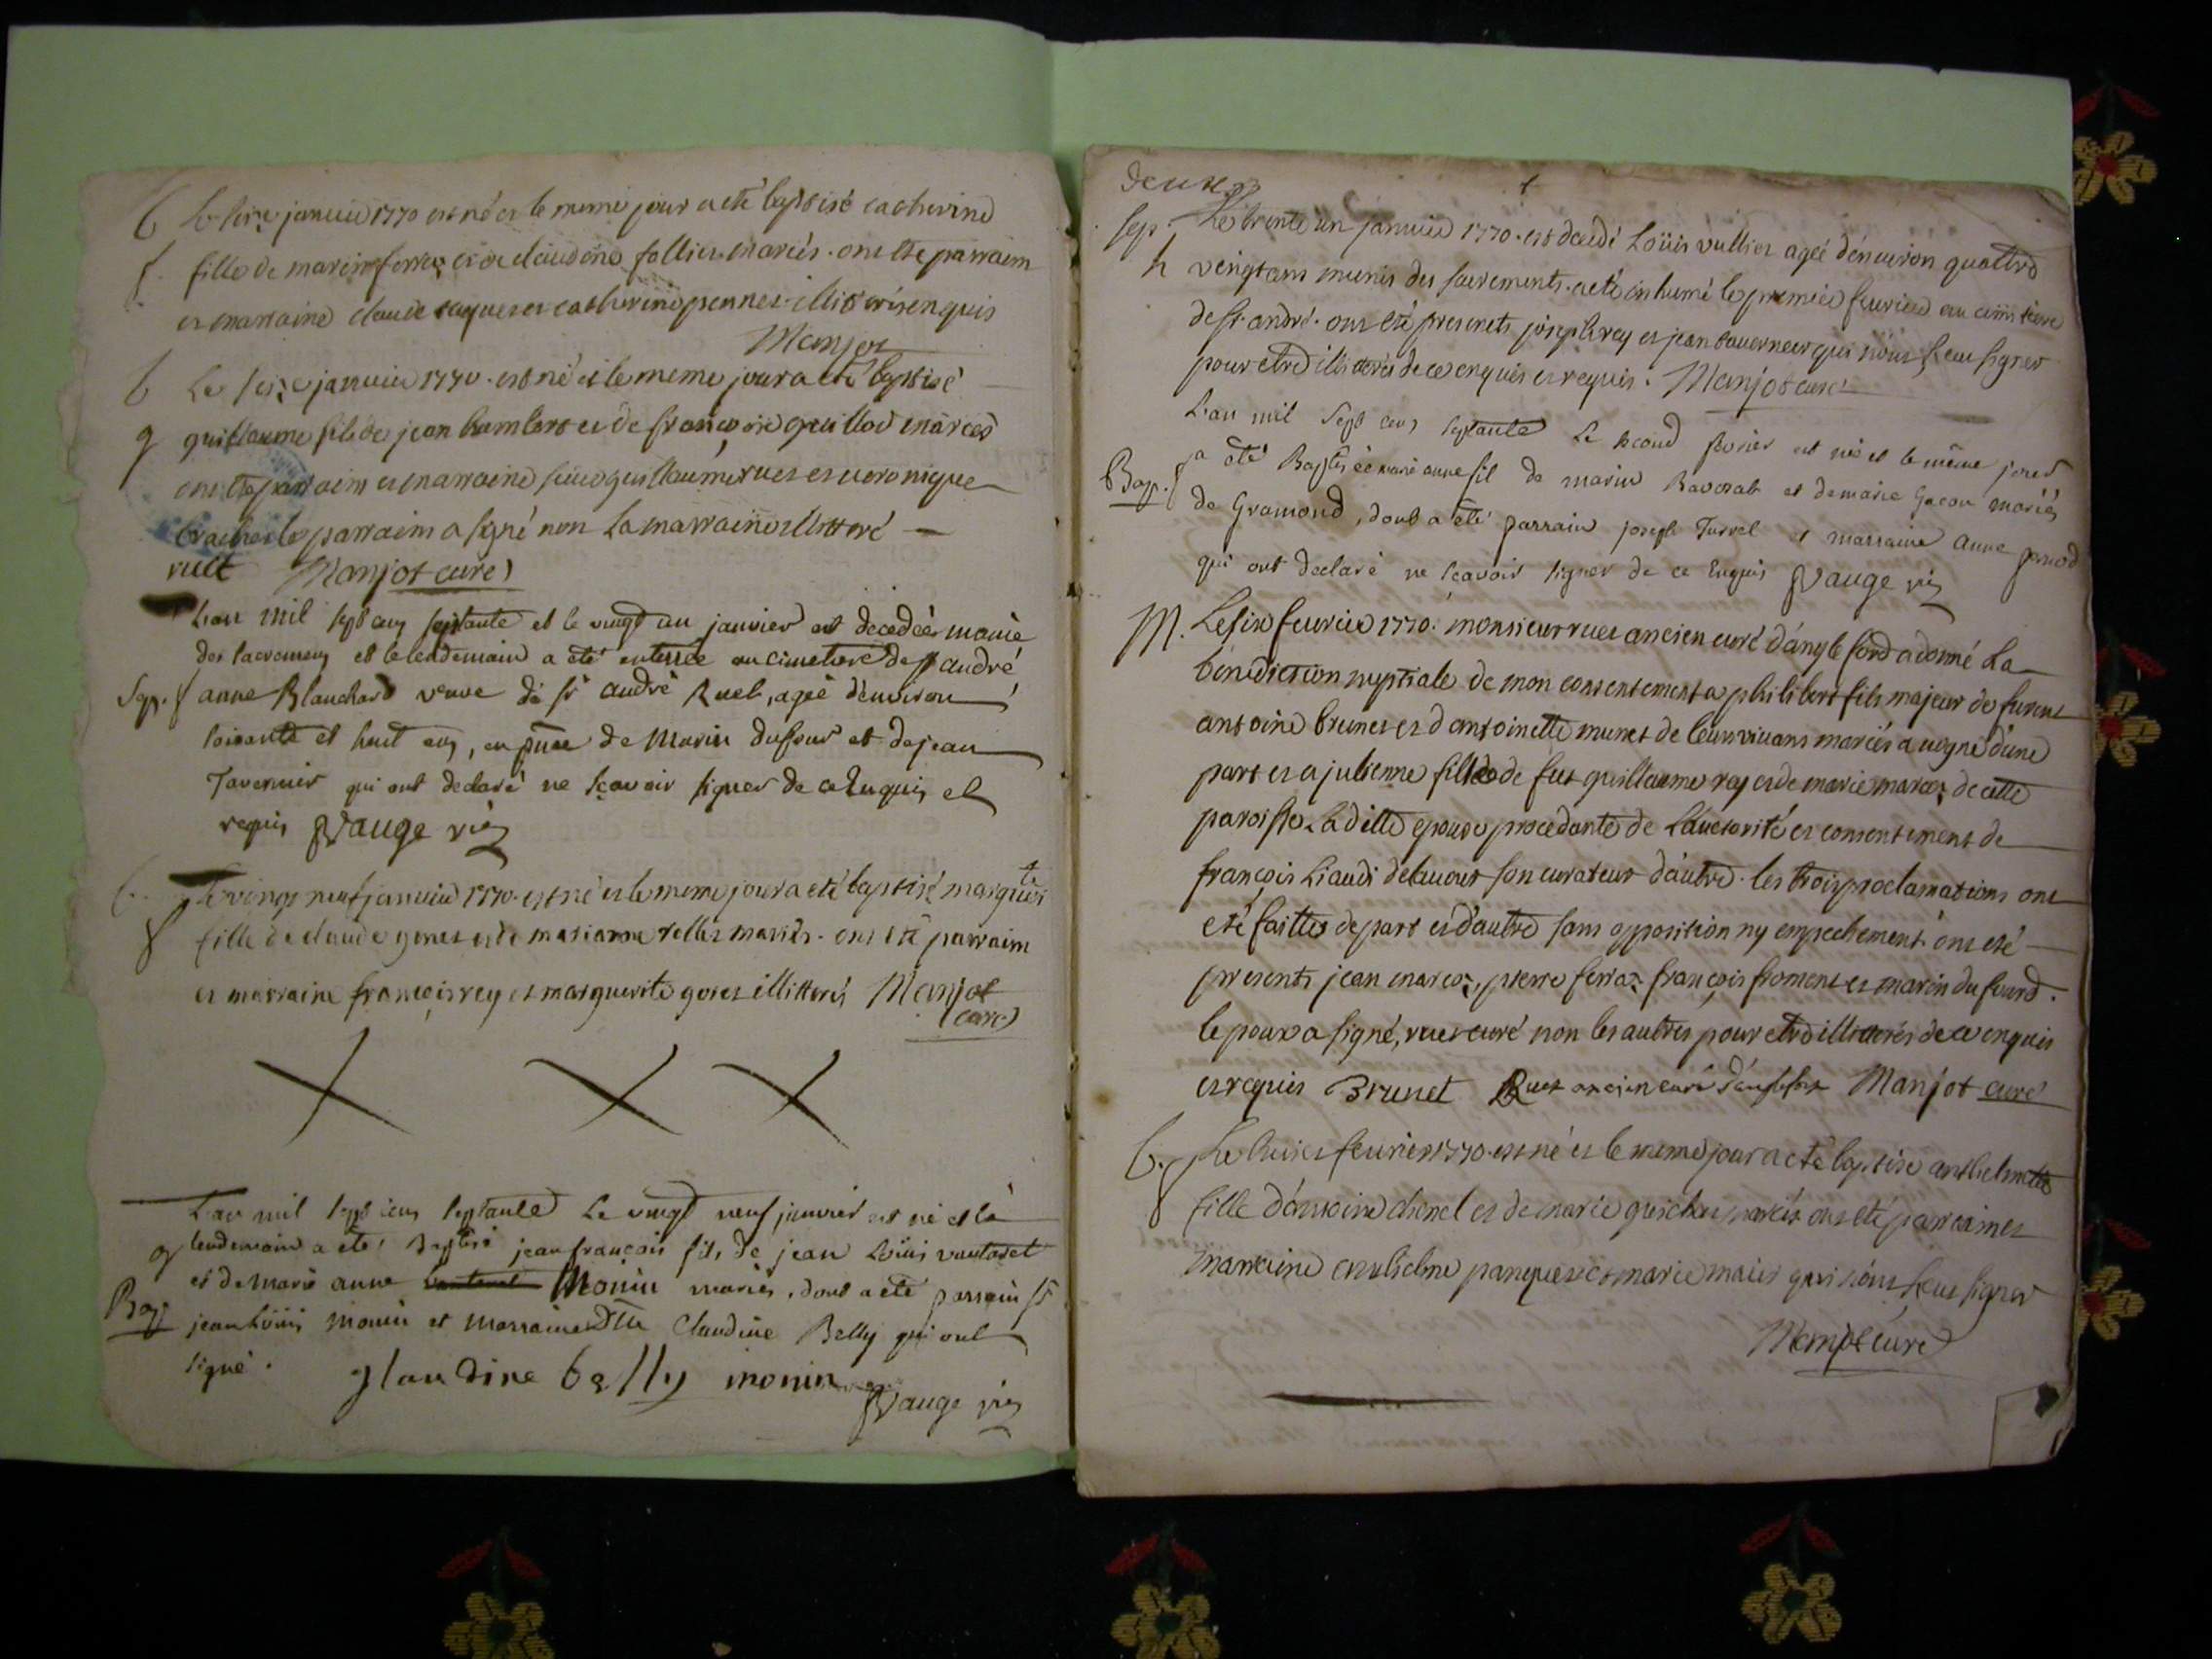 b Le seize janvier 1770 est né et le meme jour a eté baptisé catherine
f. fille de marin ferraz et de claudine follier mariés. ont eté parraim
et marraine claude et catherine pennet illitterés enquis
Manjot
b Le seize janvier 1770. est né et le meme jour a eté baptisé
g guillaume fils de jean humbert et de françoise guillod mariés
ont eté parraim et marraine guillaume ruet et veronique
le parraim a signé non la marraine illitteré
ruet Manjot curé
L'an mil sept cens septante et le vingt un janvier est decedée munie
des sacremens et le lendemain a eté enterrée au cimetiere de st andré
Sep. f anne Blanchard veuve de sr andré Ruet, agée d'environ
soixante et huit ans, en pnce de Marin dufour et de jean
Tavernier qui ont declaré ne sçavoir signer de ce Enquis et
requis Vauge vic
b. Le vingt neuf janvier 1770. est né et le meme jour a eté baptisé marguerite
f fille de claude genet et de marianne vellet mariés. ont eté parraim
et marraine françois rey et marguerite genet illitterés Manjot
curé
L'an mil sept cens septante Le vingt neuf janvier est né et le
g lendemain a eté Baptisé jean françois fils de jean Loüis vautaret
et de Marie anne vautaret Monin mariés, dont a eté parrain sr
Bap jean Loüis Monin et Marraine Dlle Claudine Belly qui ont
signé. glaudine belly monin
Vauge vic
deux
sep. Le trente un janvier 1770. est decedé Loüis vullier agé d'environ quattre
h vingt ans munis des sacrements. a eté inhumé le premier fevrier au cimitiere
de st. andré. ont eté presents joseph rey et jean tavernier qui n'ont sceu signer
pour etre illitterés de ce enquis et requis. Manjot curé
L'an mil sept cens septante Le second fevrier est né et le même jour
Bap. f a été Baptisée marie anne fil de marin Ravorat et de marie Gacon mariés
de Gramond, dont a été parrain joseph Turrel et marraine anne pernod
qui ont declaré ne sçavoir signer de ce Enquis Vauge vic
M. Le six fevrier 1770. monsieur ruet ancien curé d'angleford a donné La
bénédiction nuptiale de mon consentement a philibert fils majeur de furent
antoine brunet et d'antoinette munet de leur vivans mariés a vogne d'une
part et a julienne fille de fut guillaume rey et de marie marcoz de cette
paroisse. Laditte epouse procedante de L'auctorité et consentement de
françois Liaudi son curateur d'autre. les trois proclamations ont
eté faittes de part et d'autre sans opposition ny empechement. ont eté
presents jean marcoz, pierre ferraz françois froment et marin du fourd.
lepoux a signé, ruet curé non les autres pour etre illitterés de ce enquis
et requis Brunet Ruet ancien curé d'anglefort Manjot curé
b. Le huit fevrier 1770. est né et le meme jour a eté baptisé anthelmette
f fille d'antoine chenel et de marie mariés ont eté parraim et
marraine anthelme panquet et marie qui n'ont sceu signer
Manjot curé